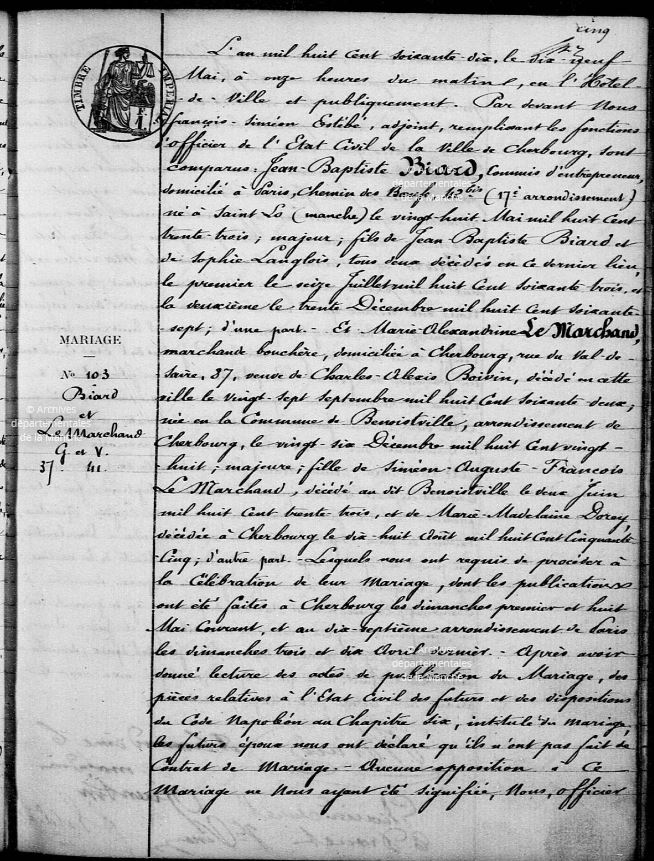 cinq
TIMBRE IMPERIAL
L'an mil huit Cent soixante-dix, le dix-neuf
Mai, à onze heures du matin, en l'Hôtel-
-de-Ville et publiquement. Par devant Nous
François-Siméon Estibé, adjoint, remplissant les fonctions
d'officier de l'Etat Civil de la Ville de Cherbourg, sont
comparus: Jean-Baptiste Biard, Commis d'entrepreneur,
domicilié à Paris, Chemin des Bœufs 43 bis (17e arrondissement)
né à Saint Lo (manche) le vingt-huit Mai mil huit Cent
trente-trois; majeur; fils de Jean-Baptiste Biard et
de Sophie Langlois, tous deux décédés en ce dernier lieu,
le premier le seize Juillet mil huit Cent soixante trois, et
la deuxième le trente Décembre mil huit Cent soixante-
sept; d'une part.- Et Marie Alexandrine Le Marchand,
marchande bouchère, domiciliée à Cherbourg, rue du Val-de-
Saire, 37, veuve de Charles-Alexis Boivin, décédé en cette
ville le vingt-sept septembre mil huit Cent soixante-deux;
née en la Commune de Benoistville, arrondissement de
Cherbourg, le vingt-six Décembre mil huit Cent vingt-
huit; majeure; fille de Siméon-Auguste-François
Le Marchand, décédé au dit Benoistville le deux Juin
mil huit Cent trente trois, et de Marie-Madelaine Dorey,
décédée à Cherbourg le dix-huit Août mil huit Cent Cinquante-
Cinq; d'autre part.- Lesquels nous ont requis de procéder à
la Célébration de leur Mariage, dont les publications
ont été faites à Cherbourg les dimanches premier et huit
Mai Courant, et au dix-septième arrondissement de Paris
les dimanches trois et dix Avril dernier.- Après avoir
donné lecture des actes de publication du Mariage, des
pièces relatives à l'Etat Civil des futurs et des dispositions
du Code Napoléon au Chapitre Six, intitulé du Mariage,
les futurs époux nous ont déclaré qu'ils n'ont pas fait de
Contrat de Mariage.- Aucune opposition à Ce
Mariage ne Nous ayant été signifiée, Nous, officier
MARIAGE
No 103
Biard
et
Le Marchand
G et V.
37 41
© Archives
départementales
de la Manche
© Archives
départementales
de la Manche
© Archives
départementales
de la Manche